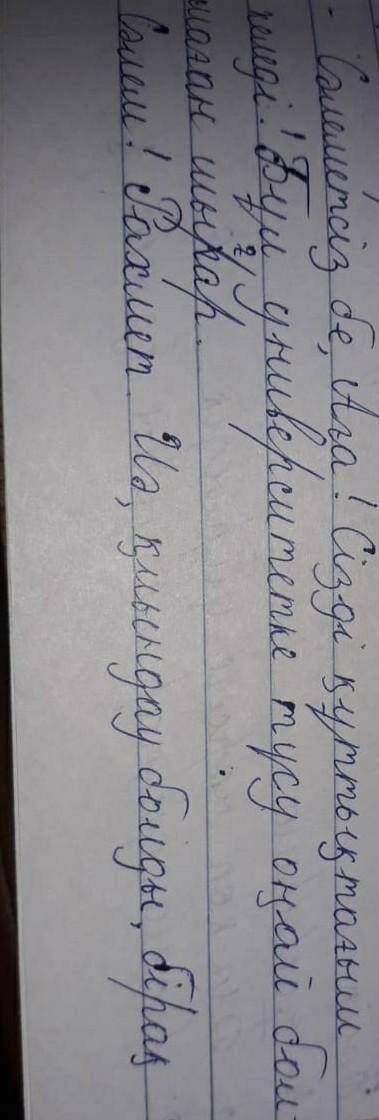 - Сәлеметсіз бе, Аға! Сізді құттықтағым
келеді! Бұл университетке түсу оңай бол
маған шығар.
Сәлем! Рахмет. Иә, қиындау болды, бірақ